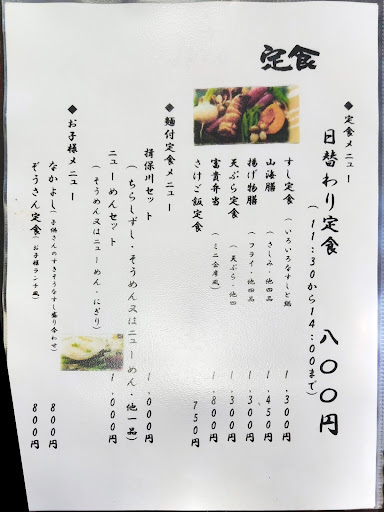 定食
◆定食メニュー
日替わり定食 八〇〇円
(11:30から14:00まで)
すし定食 (いろいろなすしと鍋 1,300円
山海膳 (さしみ・他四品 1,450円
揚げ物膳 (フライ・他四品 1,300円
天ぷら定食 (天ぷら・他四 1,300円
富貴弁当 (ミニ会席風) 1,800円
さけご飯定食 750円
◆麺付定食メニュー
揖保川セット 1,000円
(ちらしずし・そうめん又はニューめん・他一品)
ニューめんセット 1,000円
(そうめん又はニューめん・にぎり)
◆お子様メニュー
なかよし(子供さんのすきそうなすし盛り合わせ) 800円
ぞうさん定食(お子様ランチ風) 800円